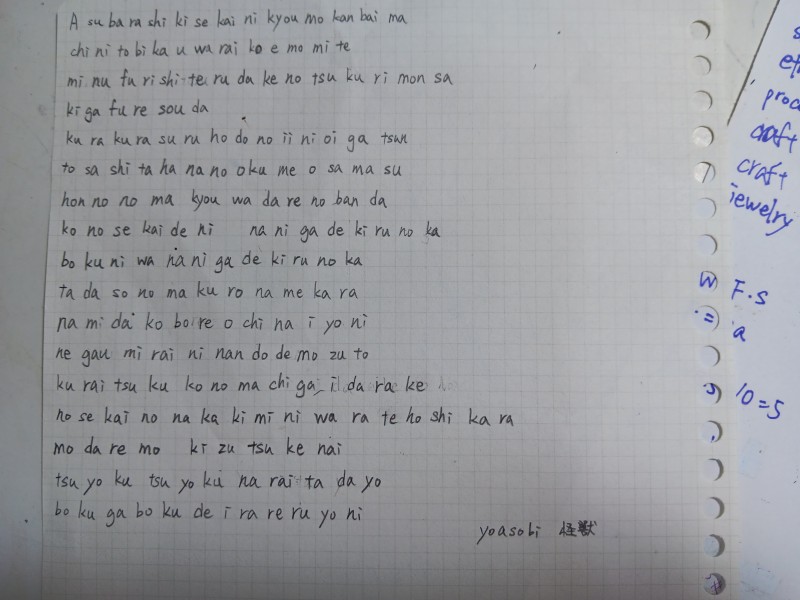 A su ba ra shi ki se kai ni kyou mo kan bai ma
chi ni to bi ka u wa rai ko e mo mi te
mi nu fu ri shi te ru da ke no tsu ku ri mon sa
ki ga fu re sou da
ku ra ku ra su ru ho do no ii ni oi ga tsun
to sa shi ta ha na no oku me o sa ma su
hon no no ma kyou wa da re no ban da
ko no se kai de ni na ni ga de ki ru no ka
bo ku ni wa na ni ga de ki ru no ka
ta da so no ma ku ro na me ka ra
na mi da ko bo re o chi na i yo ni
ne gau mi rai ni nan do de mo zu to
ku rai tsu ku ko no ma chi ga i da ra ke
no se kai no na ka ki mi ni wa ra te ho shi ka ra
mo da re mo ki zu tsu ke nai
tsu yo ku tsu yo ku na rai ta da yo
bo ku ga bo ku de i ra re ru yo ni
yoasobi 怪獣
craft
craft
jewelry
W F.s
a
10=5